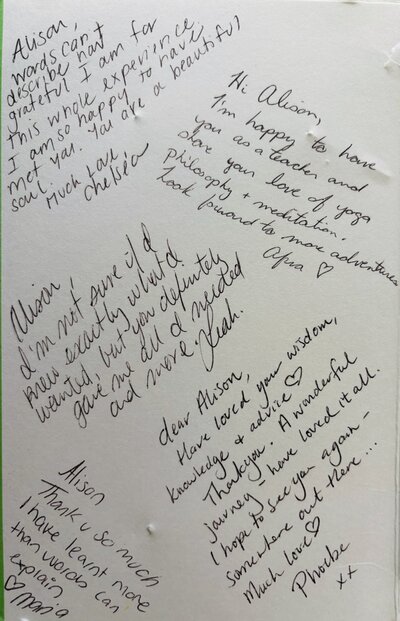 Alison,
words can't
describe how
grateful I am for
this whole experience
I am so happy to have
met you. You are a beautiful
soul.
Much Love
Chelsea
Hi Alison,
I'm happy to have
you as a teacher and
share your love of yoga
philosophy + meditation.
Look forward to more adventures
Alison,
I'm not sure i'd
knew exactly what I
wanted, but you definitely
gave me all I needed
and more. Leah.
dear Alison,
Have loved your wisdom,
knowledge & advice ♡
Thankyou. A wonderful
journey - have loved it all.
I hope to see you again -
somewhere out there...
Much love ♡
Phoebe
xx
Alison
Thank u so much
I have learnt more
than words can
explain
♡ Maria